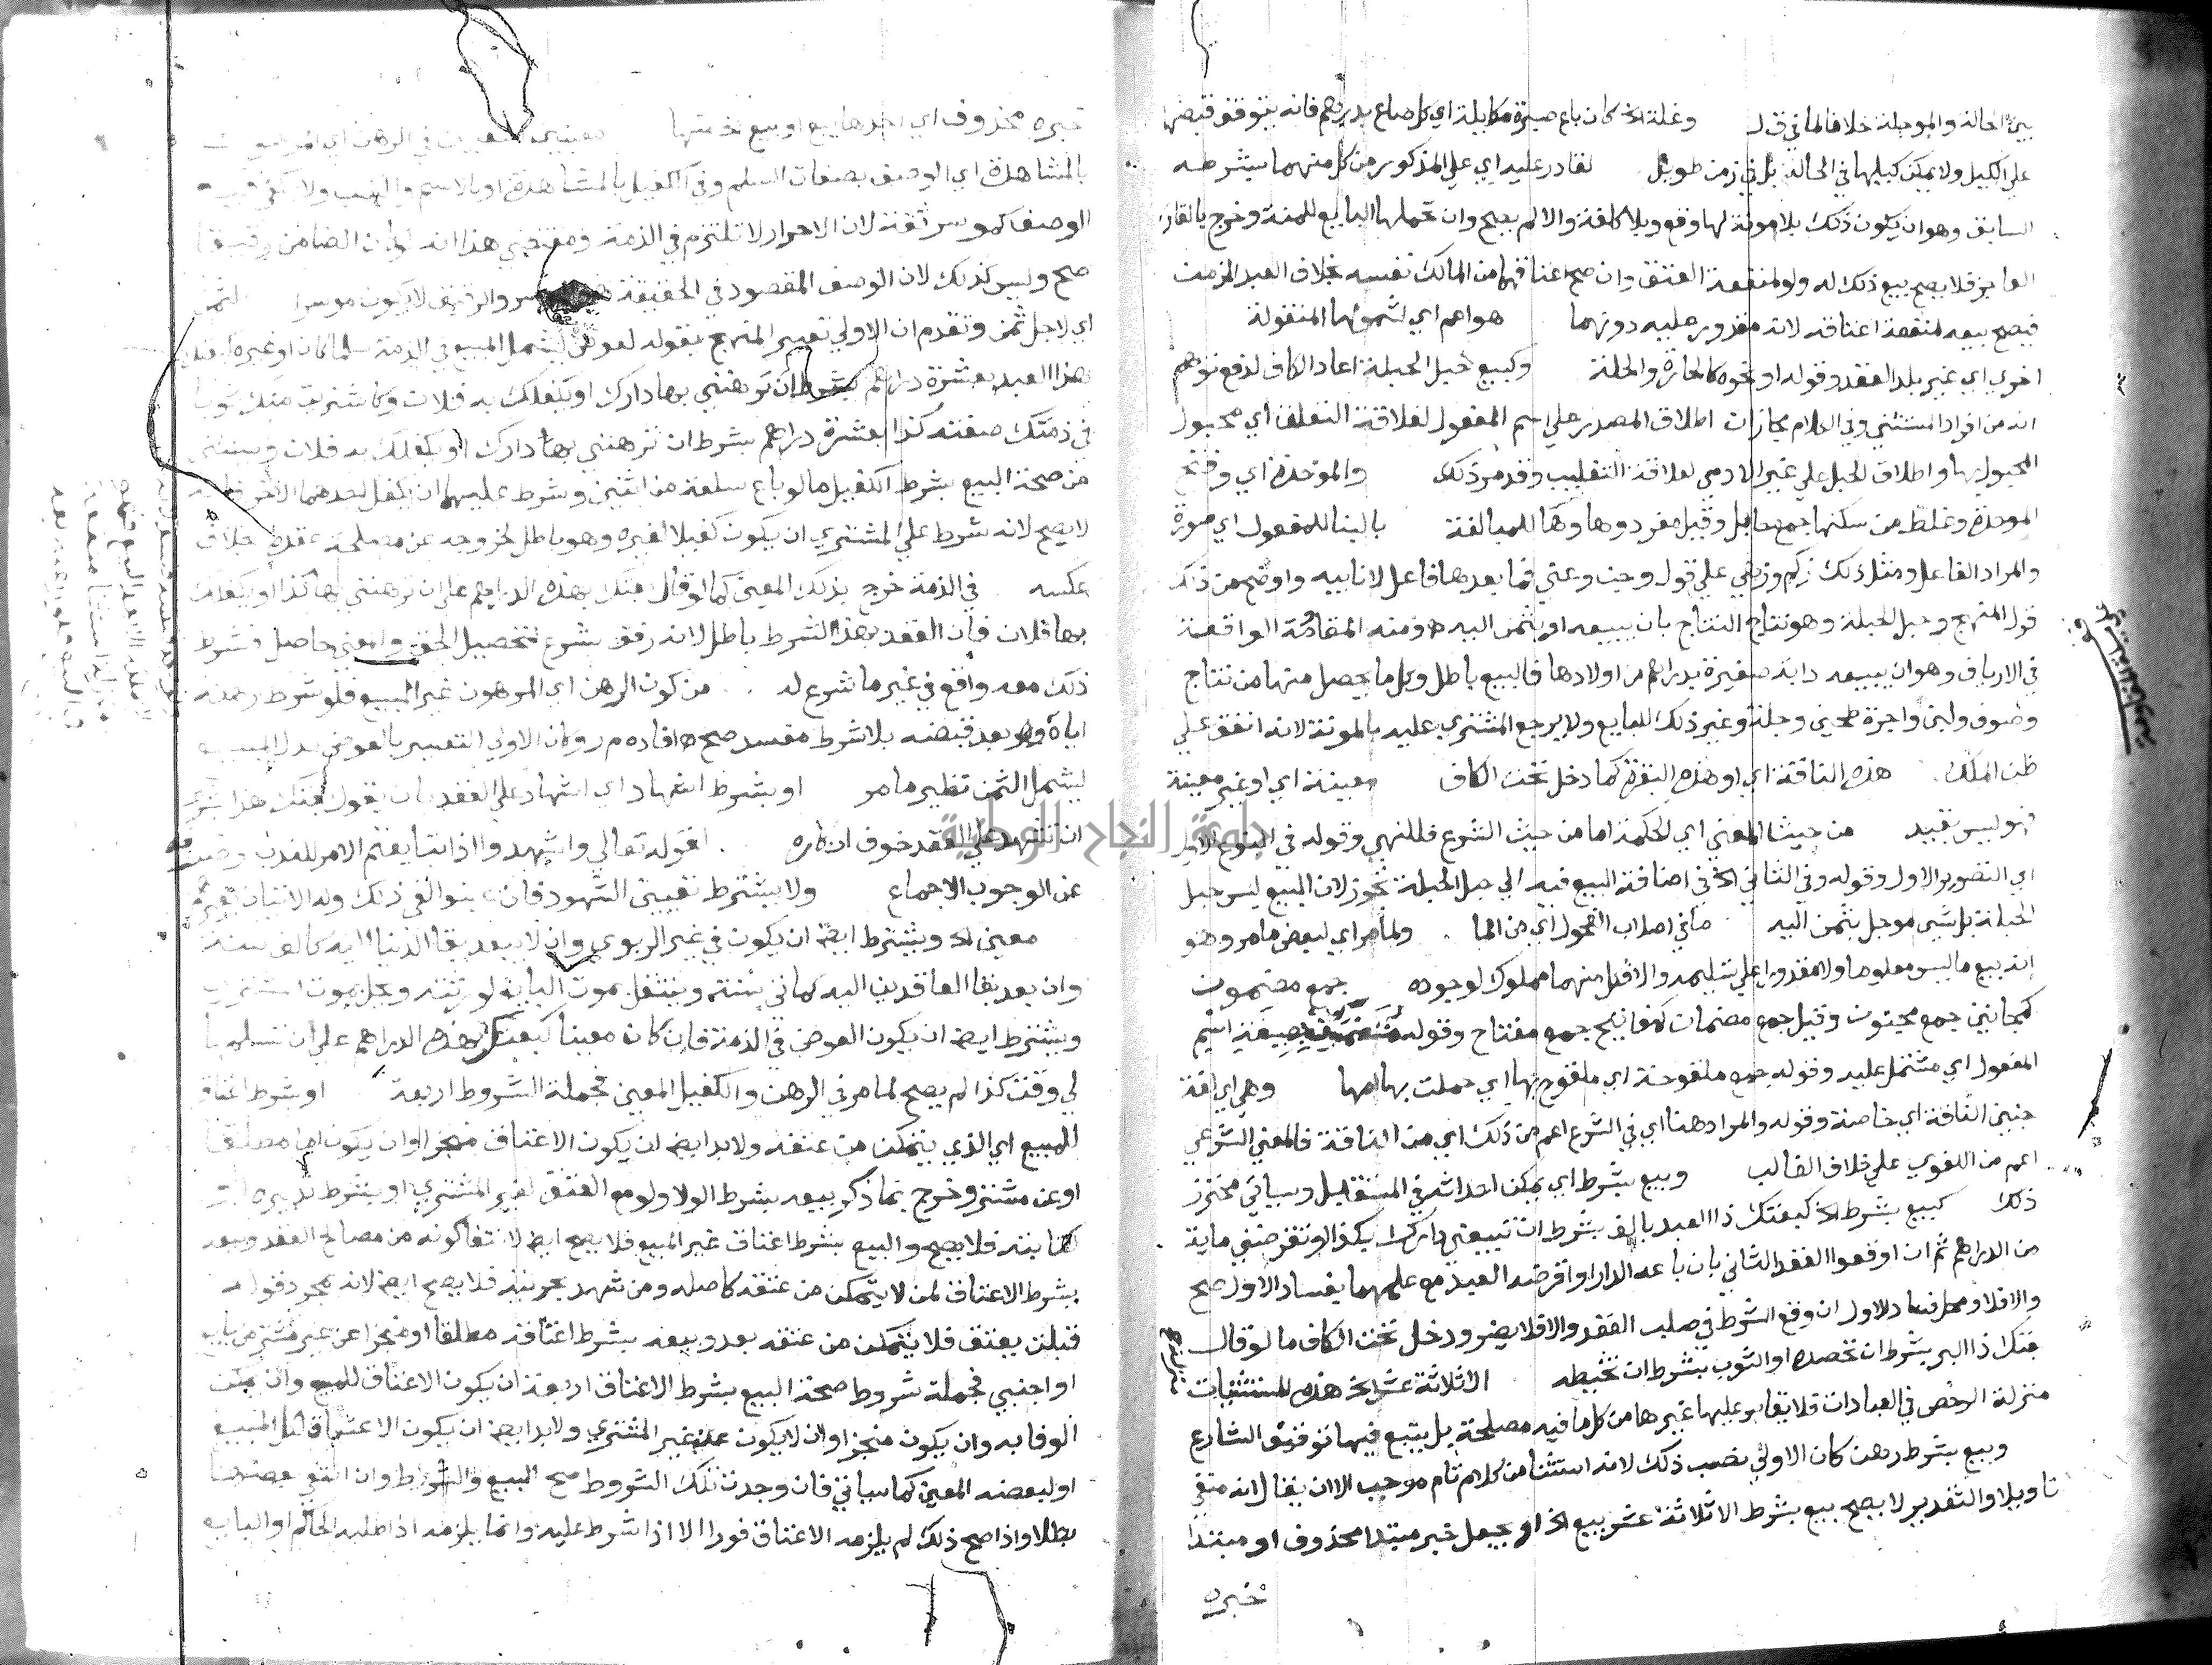 بين الحالة والموجلة خلافا لما في ق ل وغلة الخ كان باع صبرة مكايلة اي كل صاع بدرهم فانه يتوقف قبضها
علي الكيل ولا يمكن كيلها في الحال بل في زمن طويل لقادر عليه اي علي المذكور من كل منهما بشرطه
السابق وهو ان يكون ذلك بلا مونة لها وقع وبلا كلفة والا لم يصح وان تحملها البايع للمنة وخرج بالقادر
العاجز فلا يصح بيع ذلك له ولو لمنفعة العتق وان صح اعتاقهما من المالك نفسه بخلاف العبد المزمن
فيصح بيعه لمنفعة اعتاقه لانه مقدور عليه دونهما هو اعم اي لشمولها المنقولة
اخري اي غير بلد العقد وقوله او نحوه كالحارة والحلة وكبيع حبل الحبلة اعاد الكاف لدفع توهم
انه من افراد المستثني وفي الكلام مجازات اطلاق المصدر علي اسم المفعول لعلاقة التعلق اي محبول
المحبول بها واطلاق الحبل علي غير الادمي لعلاقة التغليب وقد مر ذلك والموحدة اي وفتح
الموحدة وغلط من سكنها جمع حابل وقيل مفرد وهاوها للمبالغة بالبنا للمفعول اي صورة
والمراد الفاعل ومثل ذلك زكم وزهي علي قول وجن وعني فما بعدها فاعل لا نايبه واوضح من ذلك
قول المنهج وحبل الحبلة وهو نتاج النتاج بان يبيعه او بثمن اليه ومنه المقاومة الواقعة
في الارياف وهو ان يبيعه دابة صغيرة بدراهم من اولادها فالبيع باطل وكل ما يحصل منها من نتاج
وصوف ولبن واجرة طحين وجلة وغير ذلك للبايع ولا يرجع المشتري عليه بالمونة لانه انفق علي
ظن الملك هذه الناقة اي او هذه البقرة كما دخل تحت الكاف معينة اي او غير معينة
فهو ليس بقيد من حيث المعني اي الحكمة اما من حيث الشرع فللنهي وقوله في النوع الاول
اي التصوير الاول وقوله وفي الثاني الخ في اضافة البيع فيه الي حبل الحبلة تجوز لان المبيع ليس حبل
الحبلة بل شي موجل بثمن اليه ما في اصلاب الفحول اي من الما ولما مر اي لبعض ما مر وهو
انه بيع ما ليس معلوما ولا مقدورا علي تسليمه والا فكل منهما مملوك لوجوده جمع مضمون
كمجانين جمع مجنون وقيل جمع مضمان كمفاتيح جمع مفتاح وقوله متضمنة بصيغة اسم
المفعول اي مشتمل عليه وقوله جمع ملقوحة اي ملقوح بها اي حملت بها امها وهي اي لغة
جنين الناقة اي خاصة وقوله والمراد هنا اي في الشرع اعم من ذلك اي من الناقة فالمعني الشرعي
اعم من اللغوي علي خلاف الغالب وبيع بشرط اي يمكن احداثه في المستقبل وسياتي محترز
ذلك كبيع بشرط الخ كبعتك ذا العبد بالف بشرط ان تبيعني دارك بكذا او تقرضني ماية
من الدراهم ثم ان اوقعوا العقد الثاني بان باعه الدار او اقرضه العبد مع علمهما بفساد الاول صح
والا فلا ومحل فساد الاول ان وقع الشرط في صلب العقد والا فلا يضر ودخل تحت الكاف ما لو قال
بعتك ذا البر بشرط ان تحصده او الثوب بشرط ان تخيطه الا ثلاثة عشر الخ هذه المستثنيات
منزلة الرخص في العبادات فلا يقاس عليها غيرها من كل ما فيه مصلحة بل يتبع فيها توقيف الشارع
وبيع بشرط رهن كان الاولي نصب ذلك لانه استثنا من كلام تام موجب الا ان يقال انه منفي
تاويلا والتقدير لا يصح بيع بشرط الا ثلاثة عشر بيع الخ او يجعل خبر مبتدا محذوف او مبتدا
خبره
خبره محذوف اي احدها بيع او بيع
بالمشاهدة اي الوصف بصفات السلم وفي الكفيل بالمشاهدة او بالاسم والنسب ولا يكفي فيه
الوصف كموسر ثقة لان الاحرار لا تلتزم في الذمة ومقتضي هذا انه لو كان الضامن رقيقا
صح وليس كذلك لان الوصف المقصود في الحقيقة والرقيق لا يكون موسرا لثمن
اي لاجل ثمن وتقدم ان الاولي تعبير المنهج بقوله لعوض ليشمل المبيع في الذمة سلما كان او غيره
هذا العبد بعشرة دراهم بشرط ان ترهنني بها دارك او يكفلك به فلان وكاشتريت منك ثوبا
في ذمتك صفته كذا بعشرة دراهم بشرط ان ترهنني بها دارك او يكفلك به فلان ويستثني
من صحة البيع بشرط الكفيل ما لو باع سلعة من اثنين وشرط عليهما ان يكفل احدهما الاخر فانه
لا يصح لانه شرط علي المشتري ان يكون كفيلا لغيره وهو باطل لخروجه عن مصلحة عقده خلاف
عكسه في الذمة خرج بذلك المعين كما لو قال بعتك بهذه الدراهم علي ان ترهنني بها كذا او يكفلك
بها فلان فان العقد بهذا الشرط باطل لانه رفق شرع لتحصيل الحق والمعين حاصل فشرط
ذلك معه واقع في غير ما شرع له من كون الرهن اي المرهون غير المبيع فلو شرط رهنه
اياه ولو بعد قبضه بلا شرط مفسد صح افاده م ر وكان الاولي التعبير بالعوض بدل المبيع
ليشمل الثمن نظير ما مر او بشرط اشهاد اي اشهاد علي العقد بان يقول بعتك هذا بشرط
ان تشهد علي العقد خوف انكاره لقوله تعالي واشهدوا اذا تبايعتم الامر للندب
عن الوجوب الاجماع ولا يشترط تعيين الشهود فان عينوا لغي ذلك وله الاتيان بغيرهم
معين الخ ويشترط ايضا ان يكون في غير الربوي وان لا يبعد بقا الدنيا اليه كالف سنة
وان بعد بقا العاقدين اليه كماتي سنة وينتقل بموت البايع لورثته ويحل بموت المشتري
ويشترط ايضا ان يكون العوض في الذمة فان كان معينا كبعتك بهذه الدراهم علي ان تسلمها
لي وقت كذا لم يصح لما مر في الرهن والكفيل المعين فجملة الشروط اربعة او بشرط اعتاق
للمبيع اي الذي يتمكن من عتقه ولا بد ايضا ان يكون الاعتاق منجزا وان يكون اما مطلقا
او عن مشتر وخرج بما ذكر بيعه بشرط الولا ولو مع العتق لغير المشتري او بشرط تدبيره او
كتابته فلا يصح والبيع بشرط اعتاق غير المبيع فلا يصح ايضا لانتفا كونه من مصالح العقد وبيعه
بشرط الاعتاق لمن لا يتمكن من عتقه كاصله ومن شهد بحريته فلا يصح ايضا لانه بمجرد قوله
قبلت يعتق فلا يتمكن من عتقه بعد وبيعه بشرط اعتاقه مطلقا او منجزا عن غير مشتر من بايع
او اجنبي فجملة شروط صحة البيع بشرط الاعتاق اربعة ان يكون الاعتاق للمبيع وان يمكن
الوفا به وان يكون منجزا وان لا يكون عن غير المشتري ولا بد ايضا ان يكون الاعتاق لكل المبيع
او لبعضه المعين كما سياتي فان وجدت تلك الشروط صح البيع والشرط وان انتفي بعضها
بطلا واذا صح ذلك لم يلزمه الاعتاق فورا الا اذا شرط عليه وانما يلزمه اذا طلبه الحاكم او البايع
جامعة النجاح الوطنية